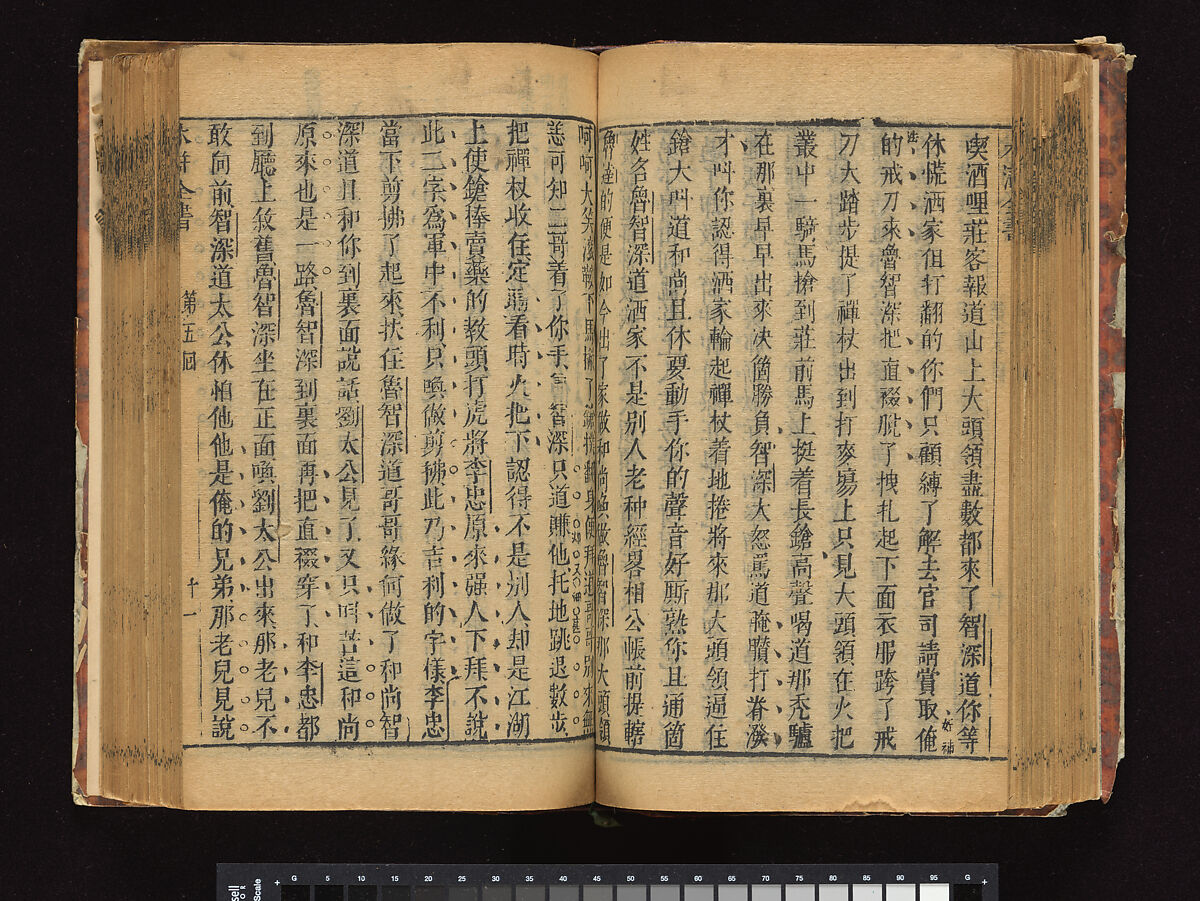 喫酒哩莊客報道山上大頭領盡數都來了智深道你等
休慌洒家但打翻的你們只顧縛了解去官司請賞取俺
的戒刀來魯智深把直裰脫了拽扎起下面衣服跨了戒
刀大踏步提了禪杖出到打麥塲上只見大頭領在火把
叢中一騎馬搶到莊前馬上挺着長鎗高聲喝道那禿驢
在那裏早早出來决箇勝負智深大怒罵道腌臢打脊潑
才叫你認得洒家輪起禪杖着地捲將來那大頭領逼住
鎗大叫道和尚且休要動手你的聲音好厮熟你且通箇
姓名魯智深道洒家不是别人老种經畧相公帳前提轄
魯達的便是如今出了家做和尚喚做魯智深那大頭領
呵呵大笑滚鞍下馬撇了鎗撲翻身便拜道哥哥别來無
恙可知二哥着了你手智深只道賺他托地跳退數步
把禪杖收住定睛看時火把下認得不是别人却是江湖
上使鎗棒賣藥的教頭打虎將李忠原來强人下拜不說
此二字爲軍中不利只喚做剪拂此乃吉利的字樣李忠
當下剪拂了起來扶住魯智深道哥哥緣何做了和尚智
深道且和你到裏面説話劉太公見了又只呌苦這和尚
原來也是一路魯智深到裏面再把直裰穿了和李忠都
到廳上敘舊魯智深坐在正面喚劉太公出來那老兒不
敢向前智深道太公休怕他他是俺的兄弟那老兒見說
水滸全書
第五回
十一